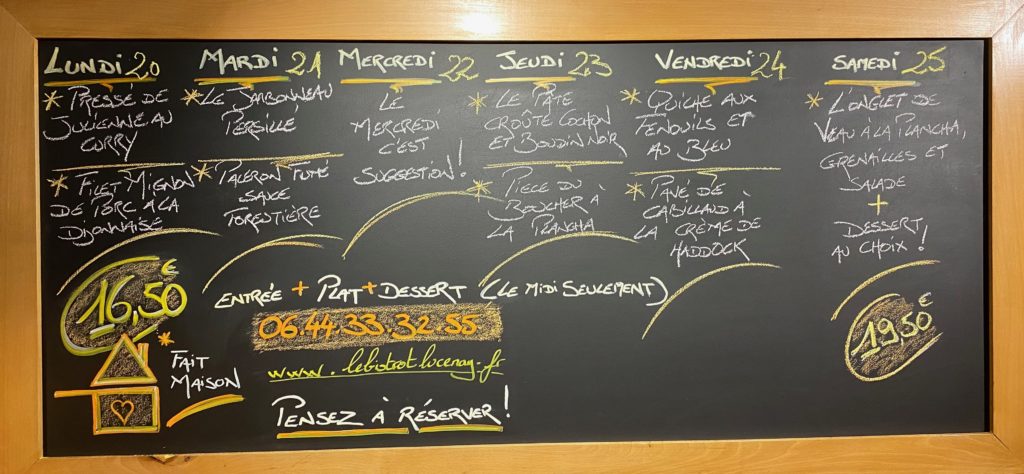 LUNDI 20
* PRESSÉ DE
JULIENNE AU
CURRY
* FILET MIGNON
DE PORC A LA
DIJONNAISE
MARDI 21
* LE JARBONNEAU
PERSILLE
* PALERON FUMÉ
SAUCE
FORESTIÈRE
MERCREDI 22
LE
MERCREDI
C'EST
SUGGESTION !
JEUDI 23
* LE PÂTE
CROÛTE COCHON
ET BOUDIN NOIR
* PIECE DU
BOUCHER À
LA PLANCHA
VENDREDI 24
* QUICHE AUX
FENOUILS ET
AU BLEU
* PANÉ DE
CABILLAUD À
LA CRÈME DE
HADDOCK
SAMEDI 25
* L'ONGLET DE
VEAU À LA PLANCHA,
GRENAILLES ET
SALADE
+
DESSERT
AU CHOIX !
16,50 €
ENTRÉE + PLAT + DESSERT (LE MIDI SEULEMENT)
06.44.33.32.55
www.lebistrotlucenay.fr
PENSEZ À RÉSERVER !
* FAIT
MAISON
19,50 €